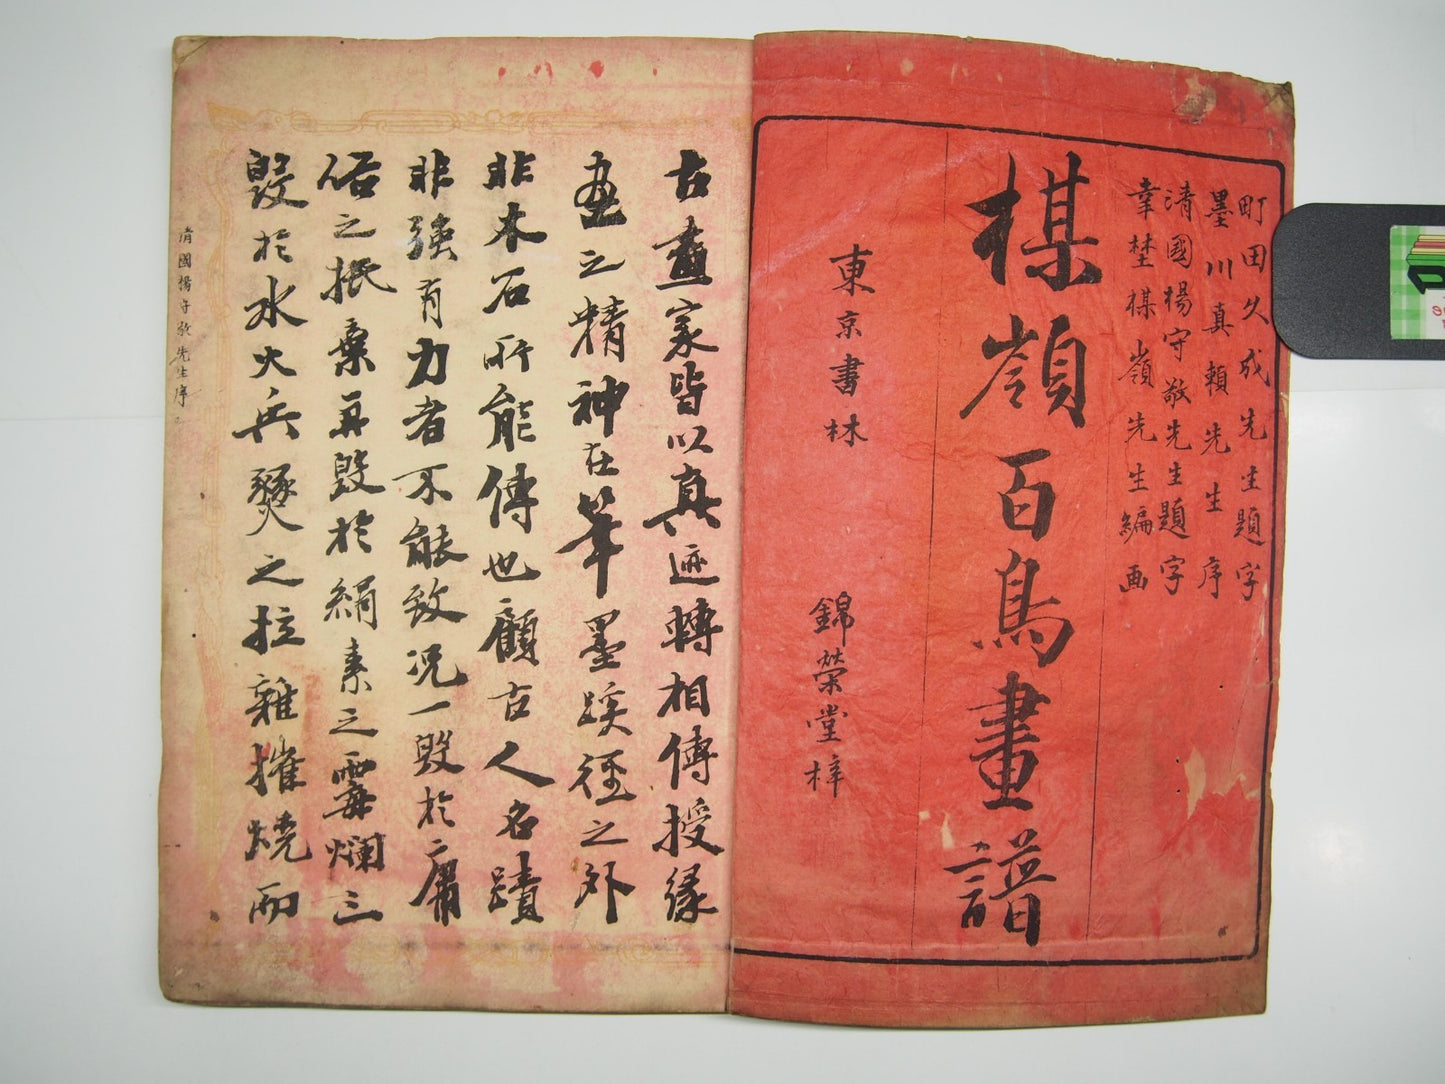 町田久成先生題字
墨川真頼先生序
清國楊守敬先生題字
幸埜楳嶺先生編画
楳嶺百鳥畫譜
東京書林
錦榮堂梓
古畫家皆以真迹轉相傳授緣
画之精神在筆墨蹊徑之外
非木石所能傳也顧古人名蹟
非強有力者不能致况一毀於庸
俗之抵棄再毀於絹素之霉爛三
毀於水火兵燹之拉雜摧燒而
清國楊守敬先生序